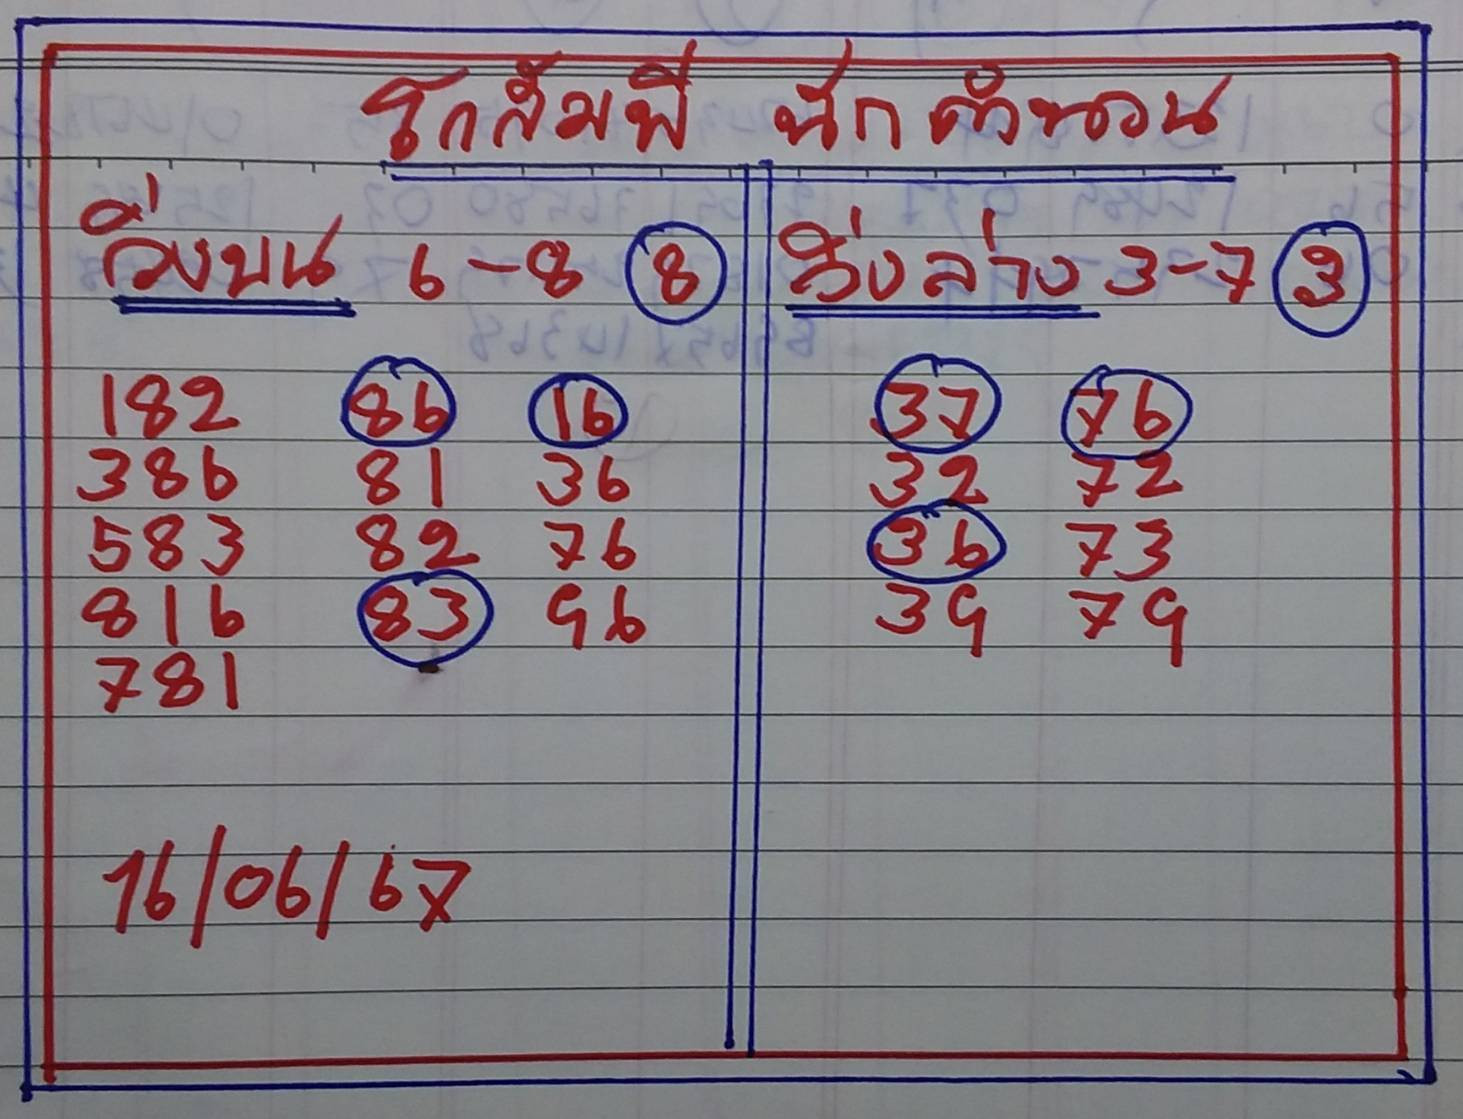 โกสัมพี นักคำนวน
วิ่งบน 6-8 8
182 86 16
386 81 36
583 82 76
816 83 96
781
16/06/67
วิ่งล่าง 3-7 3
37 76
32 72
36 73
39 79